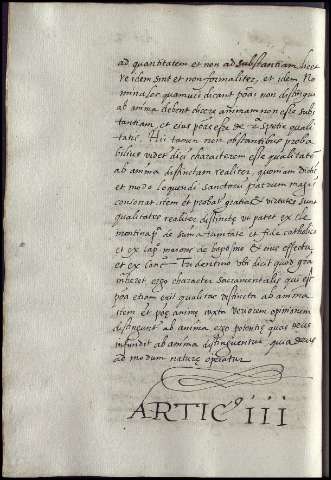 ad quantitatem et non ad substantiam licet
re idem sint et non formaliter, et idem No
minales quamvis dicant poas non distingui
ab anima debent dicere animam non esse subs
tantiam, et eius posse esse de 2a spetie quali
tatis. Hii tamen non obstantibus proba
bilius videt dici characterem esse qualitate
ab anima distinctam realiter, quoniam
et modo loquendi sanctorum patrum magis
consonat item et probat gratia et virtutes sunt
qualitates realiter distincte ut patet ex Cle
mentina pa de suma trinitate et fide catholica
et ex cap. maiores de baptismo et eius effectu
et ex Conc. Tridentino ubi dicit quod gra
inheret ergo character sacramentalis qui est
poa etiam erit qualitas distincta ab anima
item et poe anime iuxta veriorem opinionem
distingunt ab anima ergo potentie quas deus
infundit ab anima distinguentur quia deus
ad modum nature operatur
ARTICo III